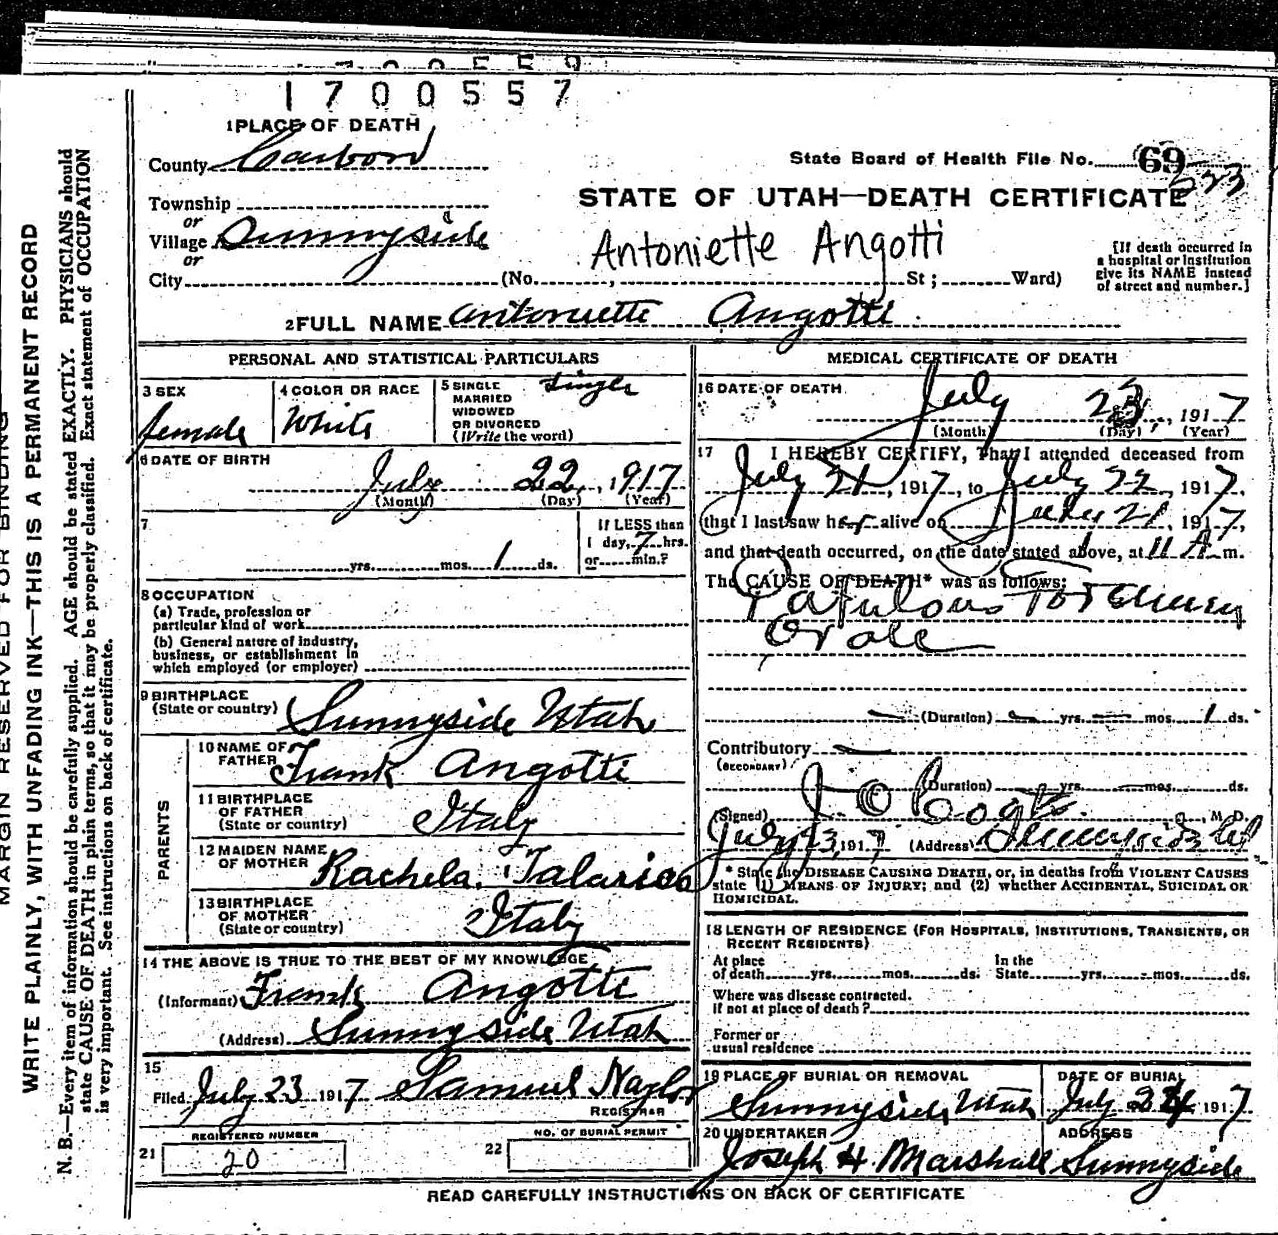 1700559
1700557
1 PLACE OF DEATH
County Carbon
State Board of Health File No. 69
523
STATE OF UTAH—DEATH CERTIFICATE
Township
or
Village Sunnyside
or
City (No. , St ; Ward)
Antoniette Angotti
[If death occurred in
a hospital or institution
give its NAME instead
of street and number.]
2 FULL NAME Antoniette Angotti
PERSONAL AND STATISTICAL PARTICULARS
3 SEX
female
4 COLOR OR RACE
White
5 SINGLE
MARRIED
WIDOWED
OR DIVORCED
(Write the word)
Single
6 DATE OF BIRTH
July 22, 1917
(Month) (Day) (Year)
7
yrs. mos. 1 ds.
If LESS than
1 day, 7 hrs.
or min.?
8 OCCUPATION
(a) Trade, profession or
particular kind of work
(b) General nature of industry,
business, or establishment in
which employed (or employer)
9 BIRTHPLACE
(State or country) Sunnyside Utah
PARENTS
10 NAME OF
FATHER Frank Angotti
11 BIRTHPLACE
OF FATHER
(State or country) Italy
12 MAIDEN NAME
OF MOTHER Rachela Talarico
13 BIRTHPLACE
OF MOTHER
(State or country) Italy
14 THE ABOVE IS TRUE TO THE BEST OF MY KNOWLEDGE
(Informant) Frank Angotti
(Address) Sunnyside Utah
15
Filed July 23 1917 Samuel Naylor
REGISTRAR
REGISTERED NUMBER
21 20
NO. OF BURIAL PERMIT
22
MEDICAL CERTIFICATE OF DEATH
16 DATE OF DEATH
July 23, 1917
(Month) (Day) (Year)
17 I HEREBY CERTIFY, That I attended deceased from
July 21, 1917, to July 22, 1917,
that I last saw her alive on 21, 1917,
and that death occurred, on the date stated above, at 11 A m.
The CAUSE OF DEATH* was as follows:
(Duration) yrs. mos. 1 ds.
Contributory
(SECONDARY)
(Duration) yrs. mos. ds.
(Signed) , M. D.
July 23, 1917 (Address)
* State the DISEASE CAUSING DEATH, or, in deaths from VIOLENT CAUSES
state (1) MEANS OF INJURY; and (2) whether ACCIDENTAL, SUICIDAL OR
HOMICIDAL.
18 LENGTH OF RESIDENCE (FOR HOSPITALS, INSTITUTIONS, TRANSIENTS, OR
RECENT RESIDENTS)
At place
of death yrs. mos. ds.
In the
State yrs. mos. ds.
Where was disease contracted.
if not at place of death?
Former or
usual residence
19 PLACE OF BURIAL OR REMOVAL
Sunnyside Utah
DATE OF BURIAL
July 24 1917
20 UNDERTAKER
Joseph H. Marshall
ADDRESS
Sunnyside
READ CAREFULLY INSTRUCTIONS ON BACK OF CERTIFICATE
MARGIN RESERVED FOR BINDING
WRITE PLAINLY, WITH UNFADING INK—THIS IS A PERMANENT RECORD
N. B.—Every item of information should be carefully supplied. AGE should be stated EXACTLY. PHYSICIANS should
state CAUSE OF DEATH in plain terms, so that it may be properly classified. Exact statement of OCCUPATION
is very important. See instructions on back of certificate.